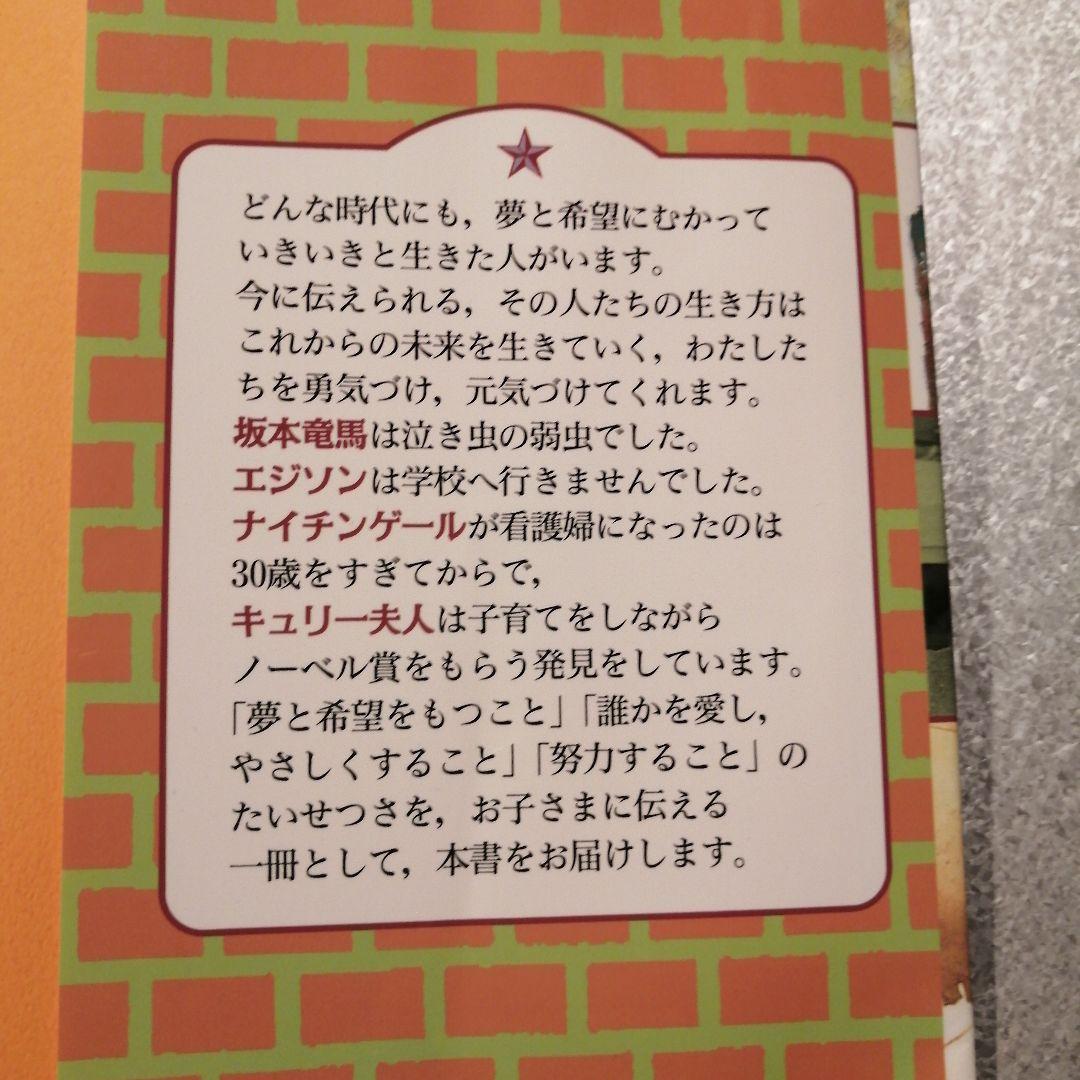 どんな時代にも，夢と希望にむかって
いきいきと生きた人がいます。
今に伝えられる，その人たちの生き方は
これからの未来を生きていく，わたした
ちを勇気づけ，元気づけてくれます。
坂本竜馬は泣き虫の弱虫でした。
エジソンは学校へ行きませんでした。
ナイチンゲールが看護婦になったのは
30歳をすぎてからで，
キュリー夫人は子育てをしながら
ノーベル賞をもらう発見をしています。
「夢と希望をもつこと」「誰かを愛し，
やさしくすること」「努力すること」の
たいせつさを，お子さまに伝える
一冊として，本書をお届けします。